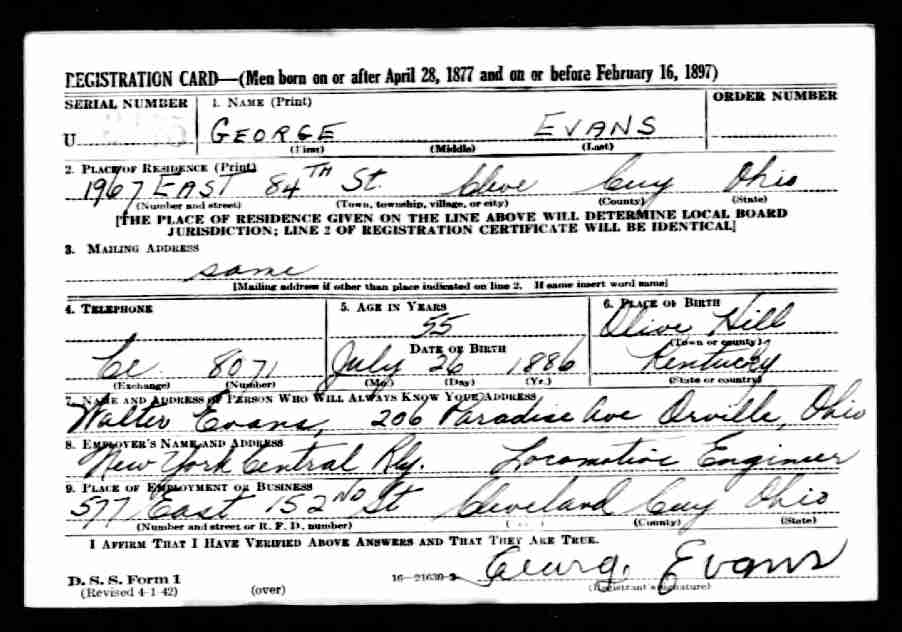 REGISTRATION CARD—(Men born on or after April 28, 1877 and on or before February 16, 1897)
SERIAL NUMBER 1. NAME (Print) ORDER NUMBER
U GEORGE EVANS
(First) (Middle) (Last)
2. PLACE OF RESIDENCE (Print)
1967 EAST 84TH St. Cleve Cuy Ohio
(Number and street) (Town, township, village, or city) (County) (State)
[THE PLACE OF RESIDENCE GIVEN ON THE LINE ABOVE WILL DETERMINE LOCAL BOARD
JURISDICTION; LINE 2 OF REGISTRATION CERTIFICATE WILL BE IDENTICAL]
3. MAILING ADDRESS
same
[Mailing address if other than place indicated on line 2. If same insert word same]
4. TELEPHONE 5. AGE IN YEARS 6. PLACE OF BIRTH
55 Olive Hill
DATE OF BIRTH (Town or county)
Ce. 8071 July 26 1886 Kentucky
(Exchange) (Number) (Mo.) (Day) (Yr.) (State or country)
7. NAME AND ADDRESS OF PERSON WHO WILL ALWAYS KNOW YOUR ADDRESS
Walter Evans, 206 Paradise Ave Orville, Ohio
8. EMPLOYER'S NAME AND ADDRESS
New York Central Rly. Locomotive Engineer
9. PLACE OF EMPLOYMENT OR BUSINESS
577 East 152ND St Cleveland Cuy Ohio
(Number and street or R. F. D. number) (County) (State)
I AFFIRM THAT I HAVE VERIFIED ABOVE ANSWERS AND THAT THEY ARE TRUE.
Georg. Evans
D. S. S. Form 1 16—21630-2 (Registrant's signature)
(Revised 4-1-42) (over)